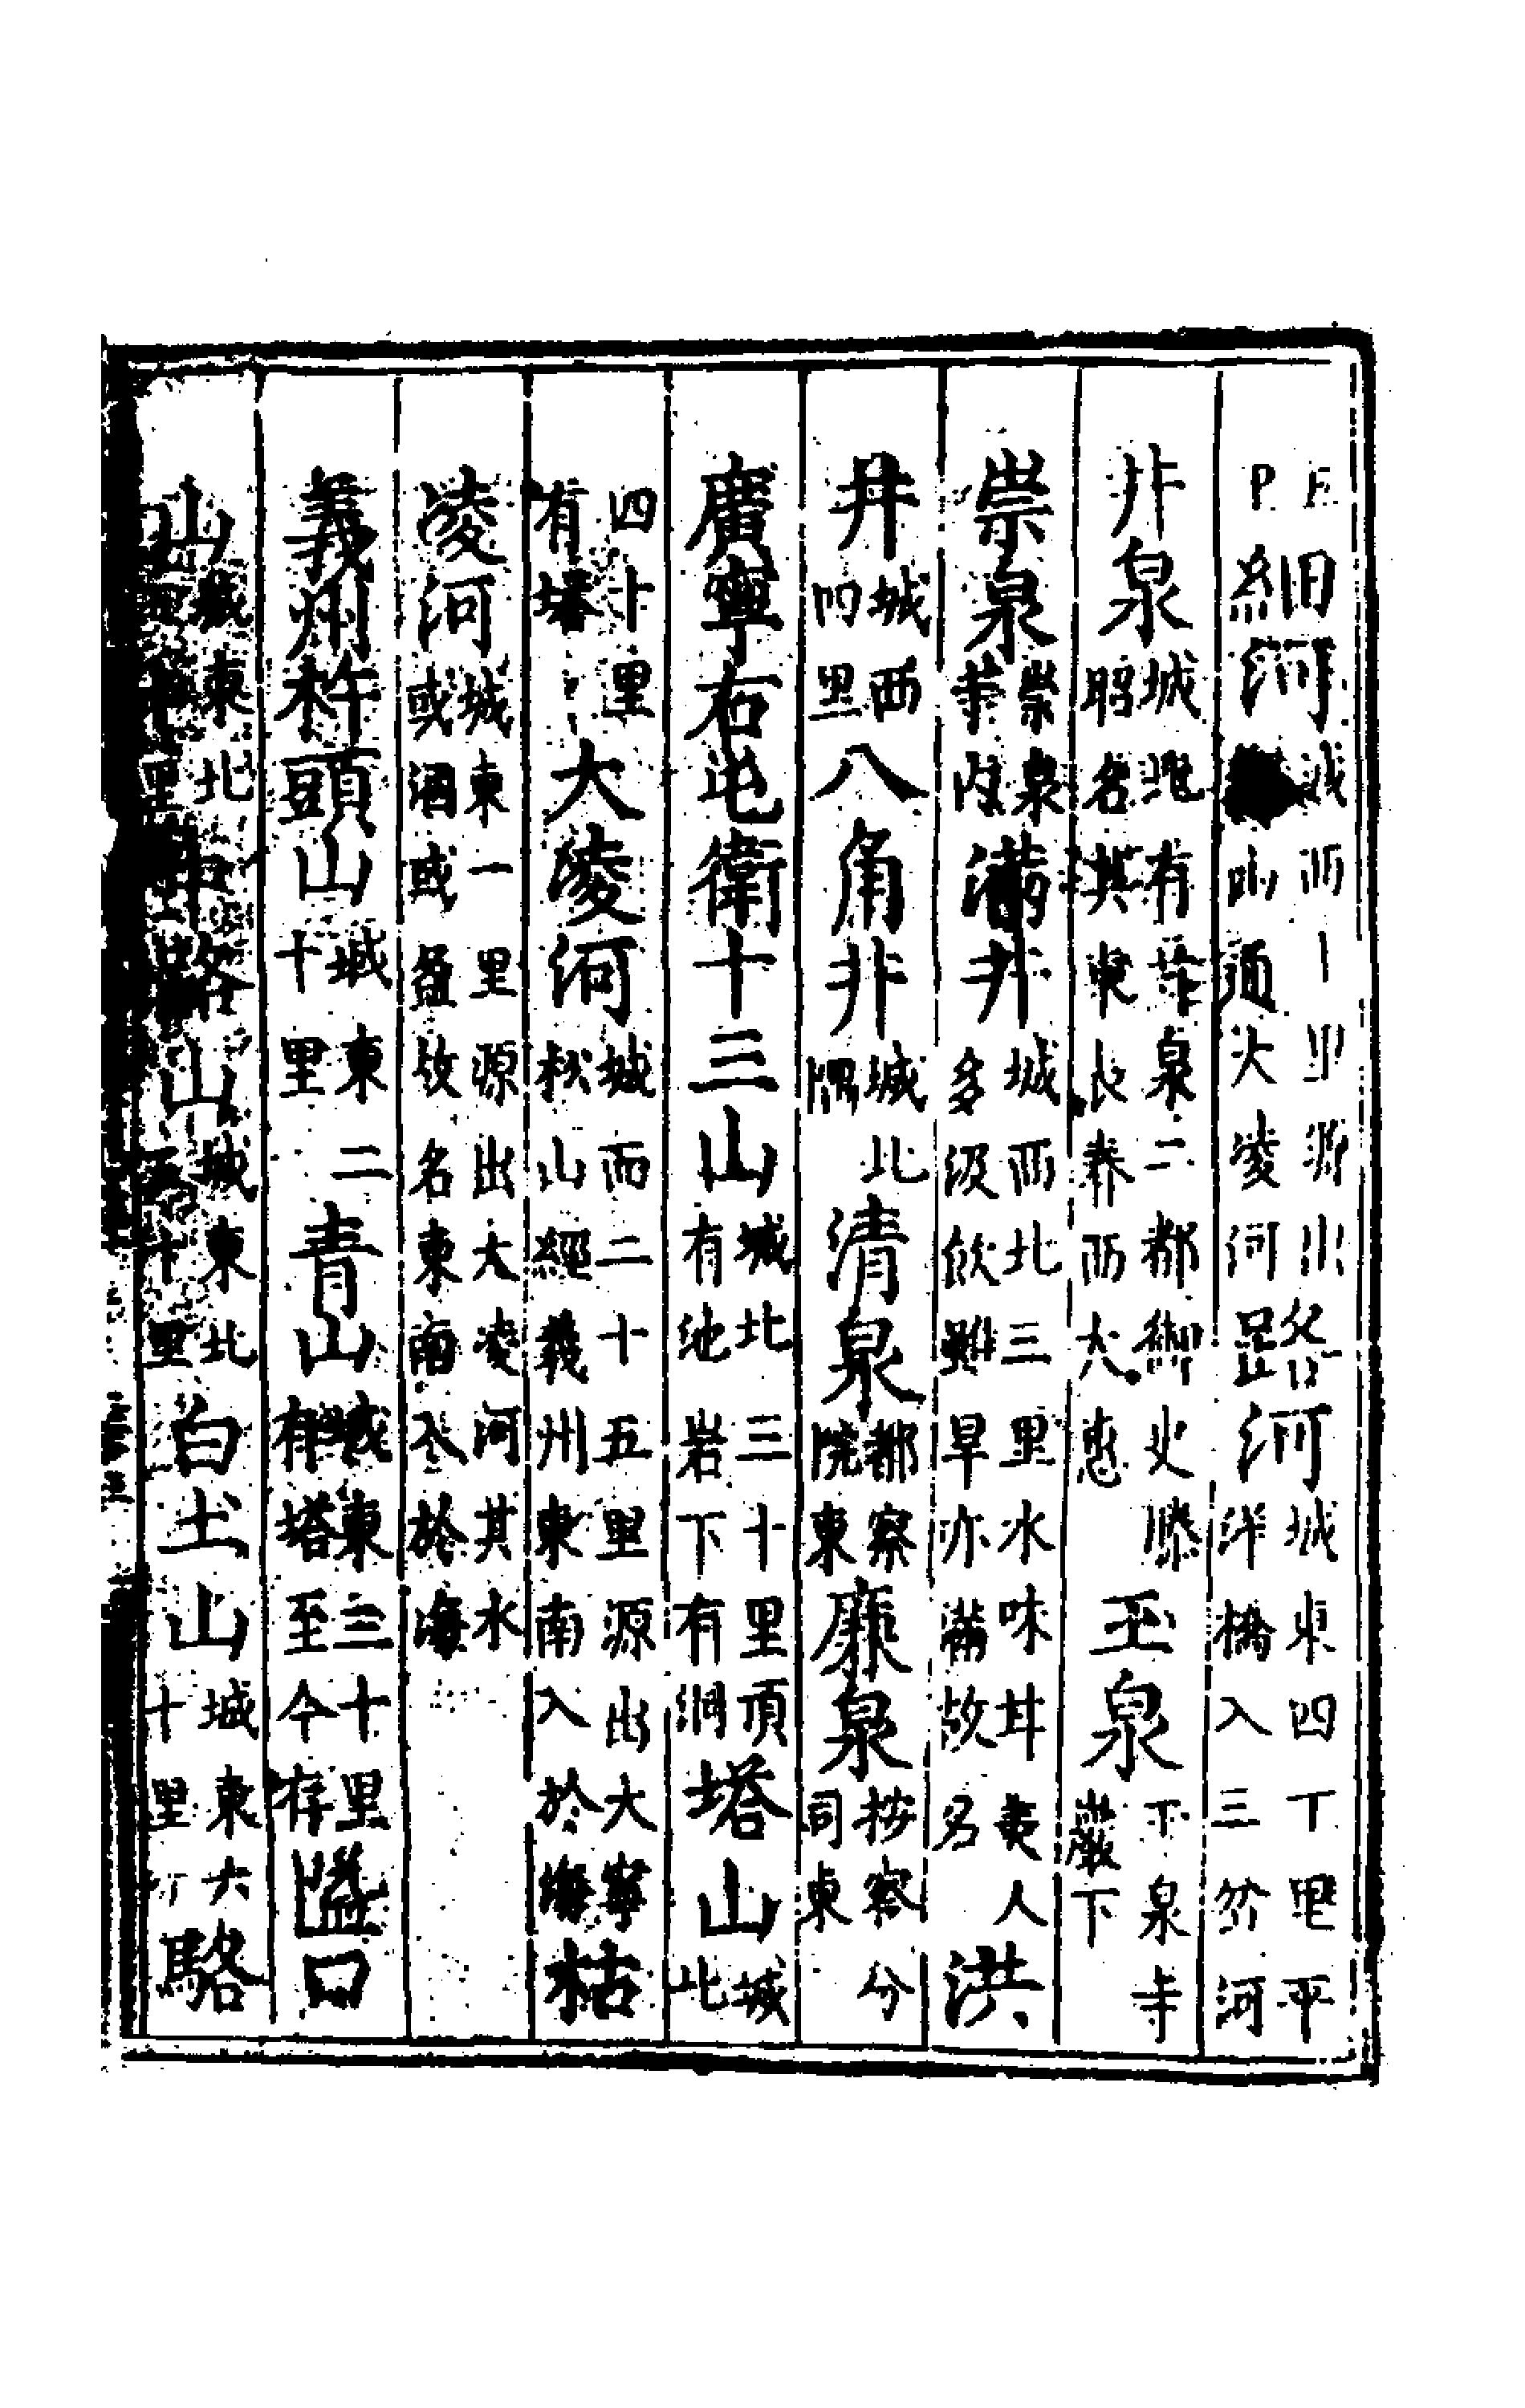 細河城西 山通大凌河 路河城東四丁里平洋橋入三分河
井泉城北有井泉二都御史滕昭名其東長春西大惠 玉泉下泉寺巖下
崇泉崇泉寺內 滿井城西北三里水味甘夷人多汲飲雖旱亦滿故名 洪
井城西四里 八角井城北隅 清泉都察院東 廉泉按察分司東
廣寧右屯衛十三山城北三十里頂有池岩下有洞 塔山城北
四十里有塔 大凌河城西二十五里源出大寧松山經義州東南入於海 枯
凌河城東一里源出大凌河其水或涸或盈故名東南入於海
義州杵頭山城東二十里 青山城東三十里有塔至今存 隘口
山城東北 里 中路山城東北五十里 白土山城東六十里 駱